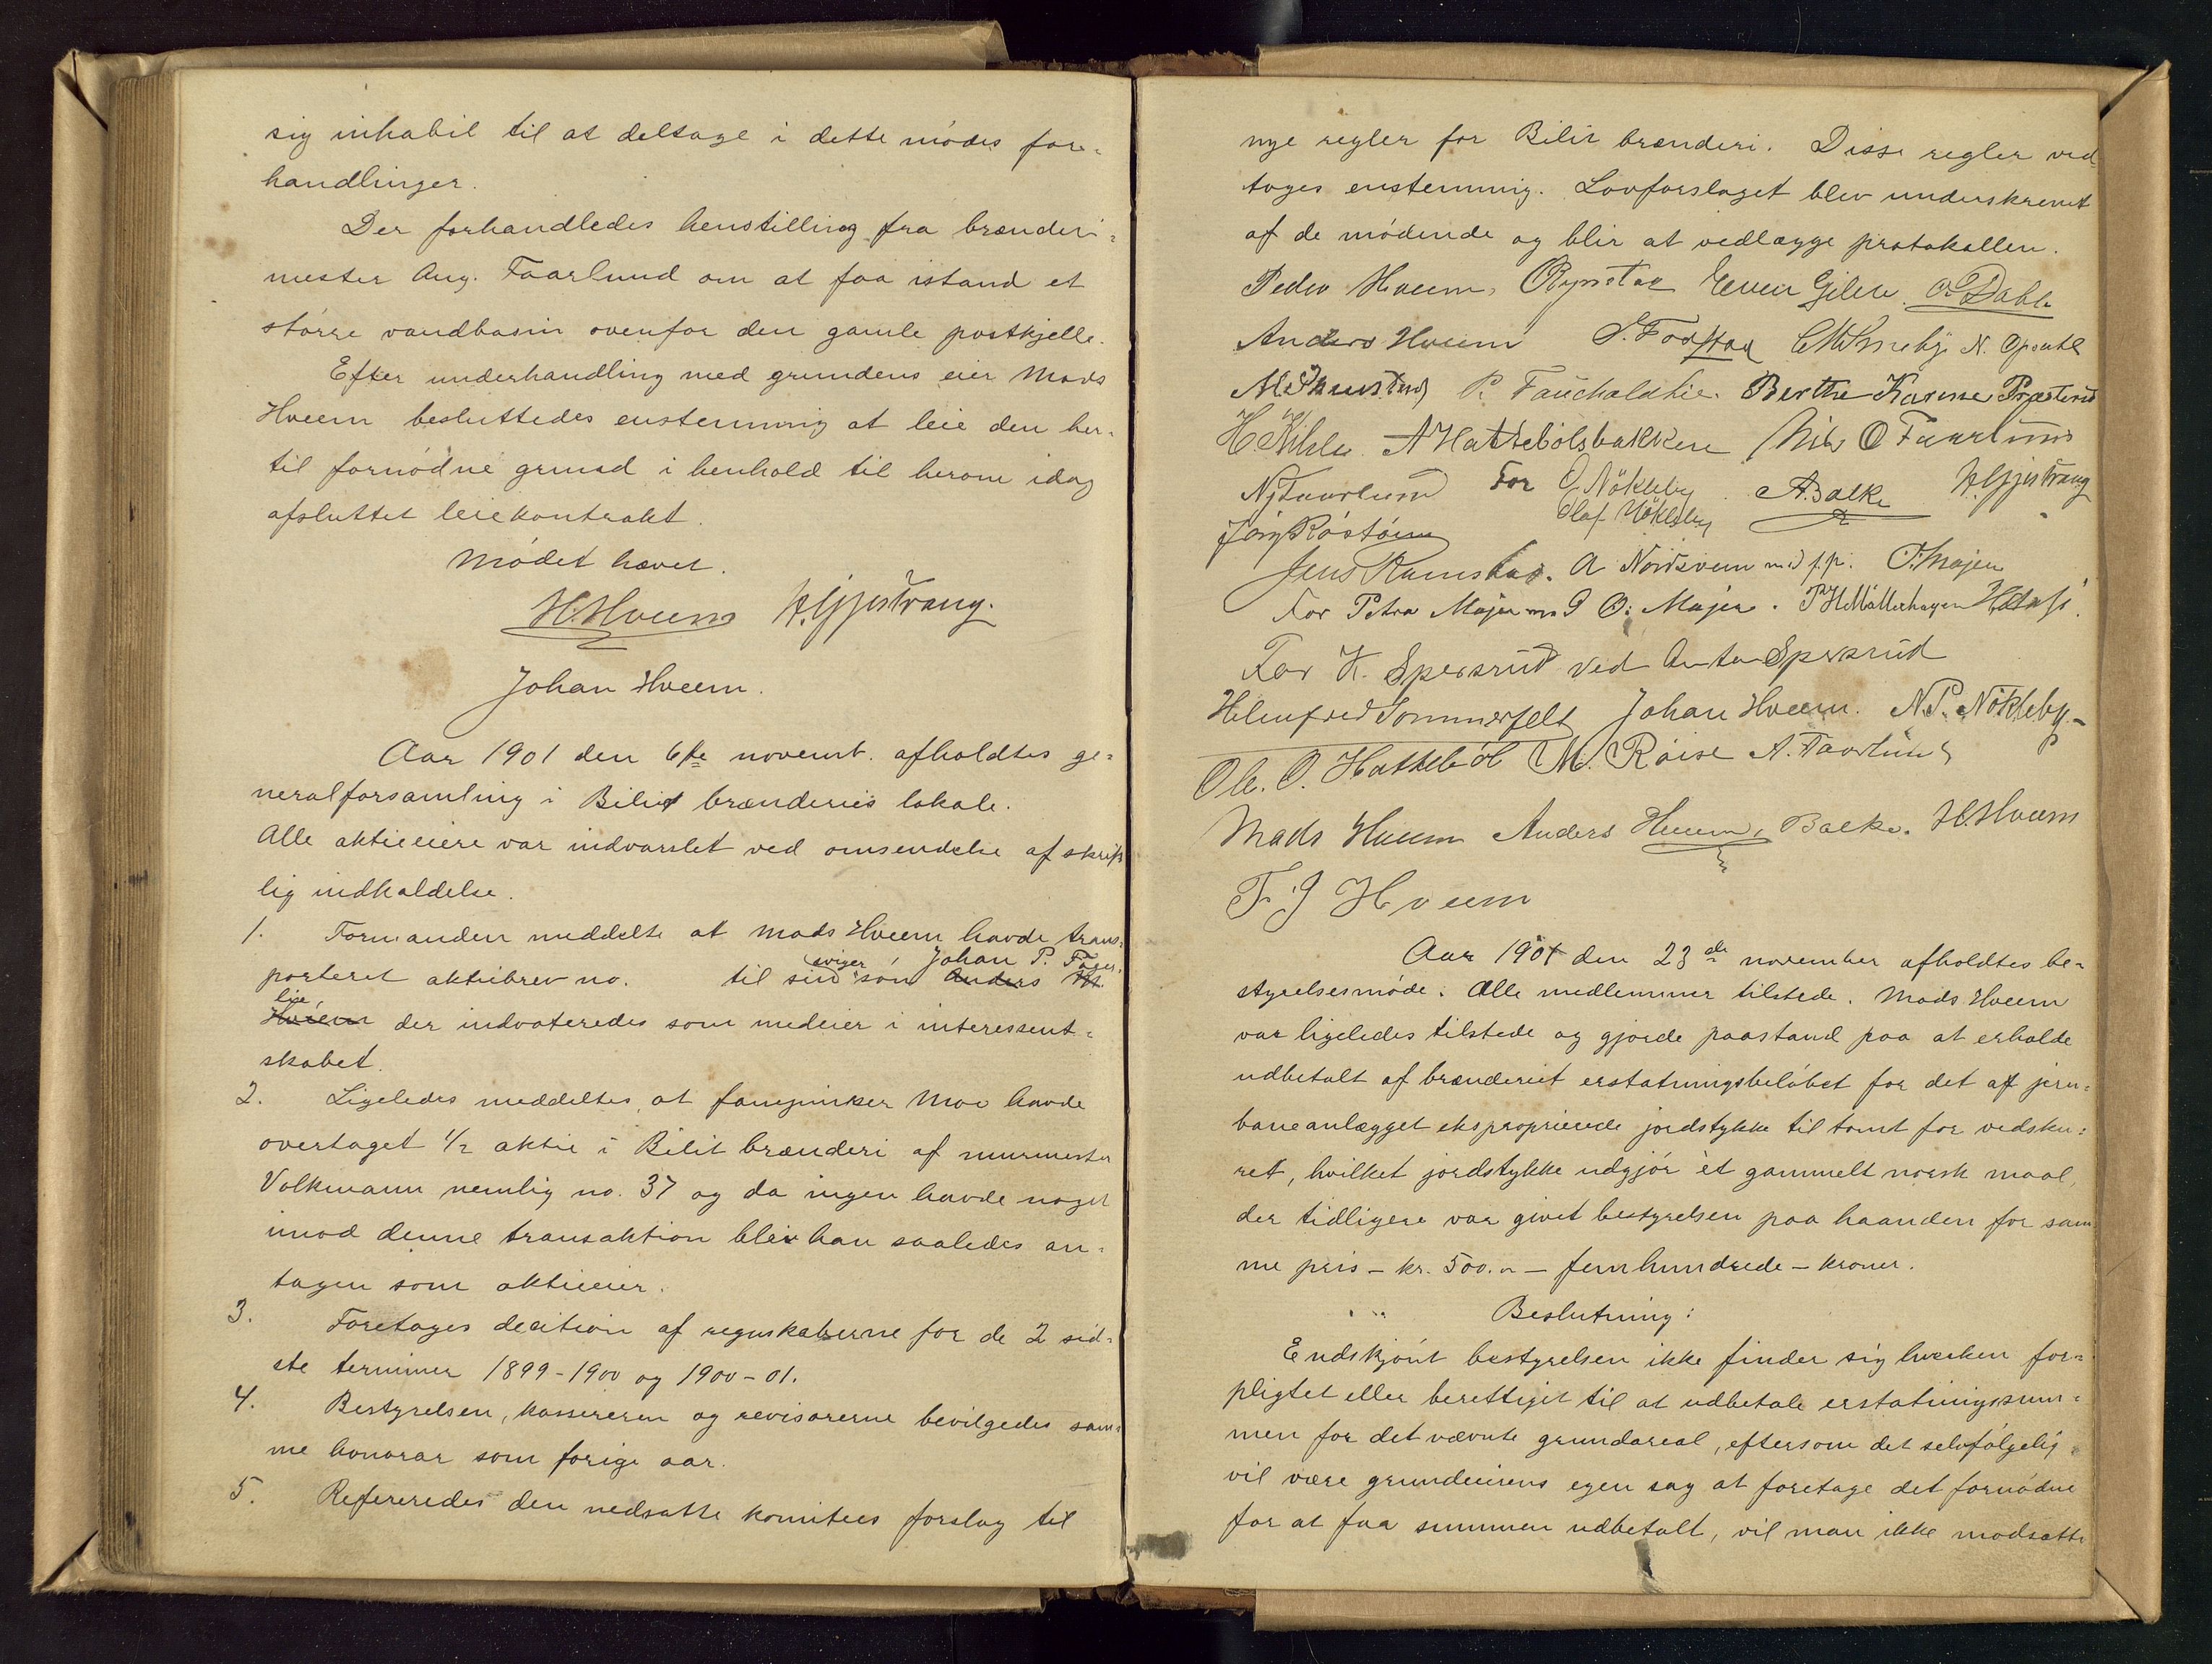 sig inhabil til at deltage i dette mödes for-
handlinger.
Der forhandledes henstilling fra brænderi-
mester Aug. Faarlund om at faa istand et
större vandbasin ovenfor den gamle postkjelle.
Efter underhandling med grundens eier Mads
Hveem besluttedes enstemmig at leie den her-
til fornödne grund i henhold til herom idag
afsluttet leiekontrakt.
Mödet hævet.
H. Hveem H. Gjestvang.
Johan Hveem.
Aar 1901 den 6te novemb. afholdtes ge-
neralforsamling i Bilit brænderies lokale.
Alle aktieeiere var indvarslet ved omsendelse af skrift
lig indkaldelse.
1. Formanden meddelte at Mads Hveem havde trans-
sviger Johan P. Fager-
porteret aktiebrev no. til sin sön Anders M.
lie,
Hveem der indvoteredes som medeier i interessent-
skabet.
2. Ligeledes meddeltes, at farvejunker Moe havde
overtaget 1/2 aktie i Bilit brænderi af murmester
Volkmann nemlig no. 37 og da ingen havde noget
imod denne transaktion blev han saaledes an-
tagen som aktieeier.
3. Foretages decition af regnskaberne for de 2 sid-
ste terminer 1899-1900 og 1900-01.
4. Bestyrelsen, kassereren og revisorerne bevilgedes sam-
me honorar som forige aar.
5. Refereredes den nedsatte komitees forslag til
nye regler for Bilit brænderi. Disse regler ved
toges enstemmig. Lovforslaget blev underskrevet
af de mödende og blir at vedlægge protokollen.
Peder Hveem, Even Gile O. Dahl
Anders Hveem S. Fodstad N. Opsahl
P. Fauchaldlie. Berthe Karine Præsterud
H. Kihle. A Hattebölsbakken Nils O Faarlund
N J Faarlund For O Nökleby. A. Balke H. Gjestvang
Olaf Nökleby
Jörg Röstöen
Jens Ramstad. A Nordsveen m.d f.p. P. Majer
For Petra Majer m P O. Majer. P H Möllerhagen
For K. Spersrud ved Anton Spersrud
Helmfred Sommerfelt Johan Hveem. N. P. Nökleby-
Ole. O. Hatteböl M. Röise A. Faarlund
Mads Hveem Anders Hveem, Balke. H. Hveem
F. J Hveem
Aar 1901 den 23de november afholdtes be-
styrelsesmöde. Alle medlemmer tilstede. Mads Hveem
var ligeledes tilstede og gjorde paastand paa at erholde
udbetalt af brænderiet erstatningsbelöbet for det af jern-
baneanlægget eksproprierede jordstykke til tomt for vedsku-
ret, hvilket jordstykke udgjör èt gammelt norsk maal,
der tidligere var givet bestyrelsen paa haanden for sam
me pris - kr. 500.00 - femhundrede - kroner.
Beslutning:
Endskjönt bestyrelsen ikke finder sig hverken for-
pligtet eller berettiget til at udbetale erstatningssum-
men for det nævnte grundareal, eftersom det selvfölgelig
vil være grundeierens egen sag at foretage det fornödne
for at faa summen udbetalt, vil man ikke modsætte